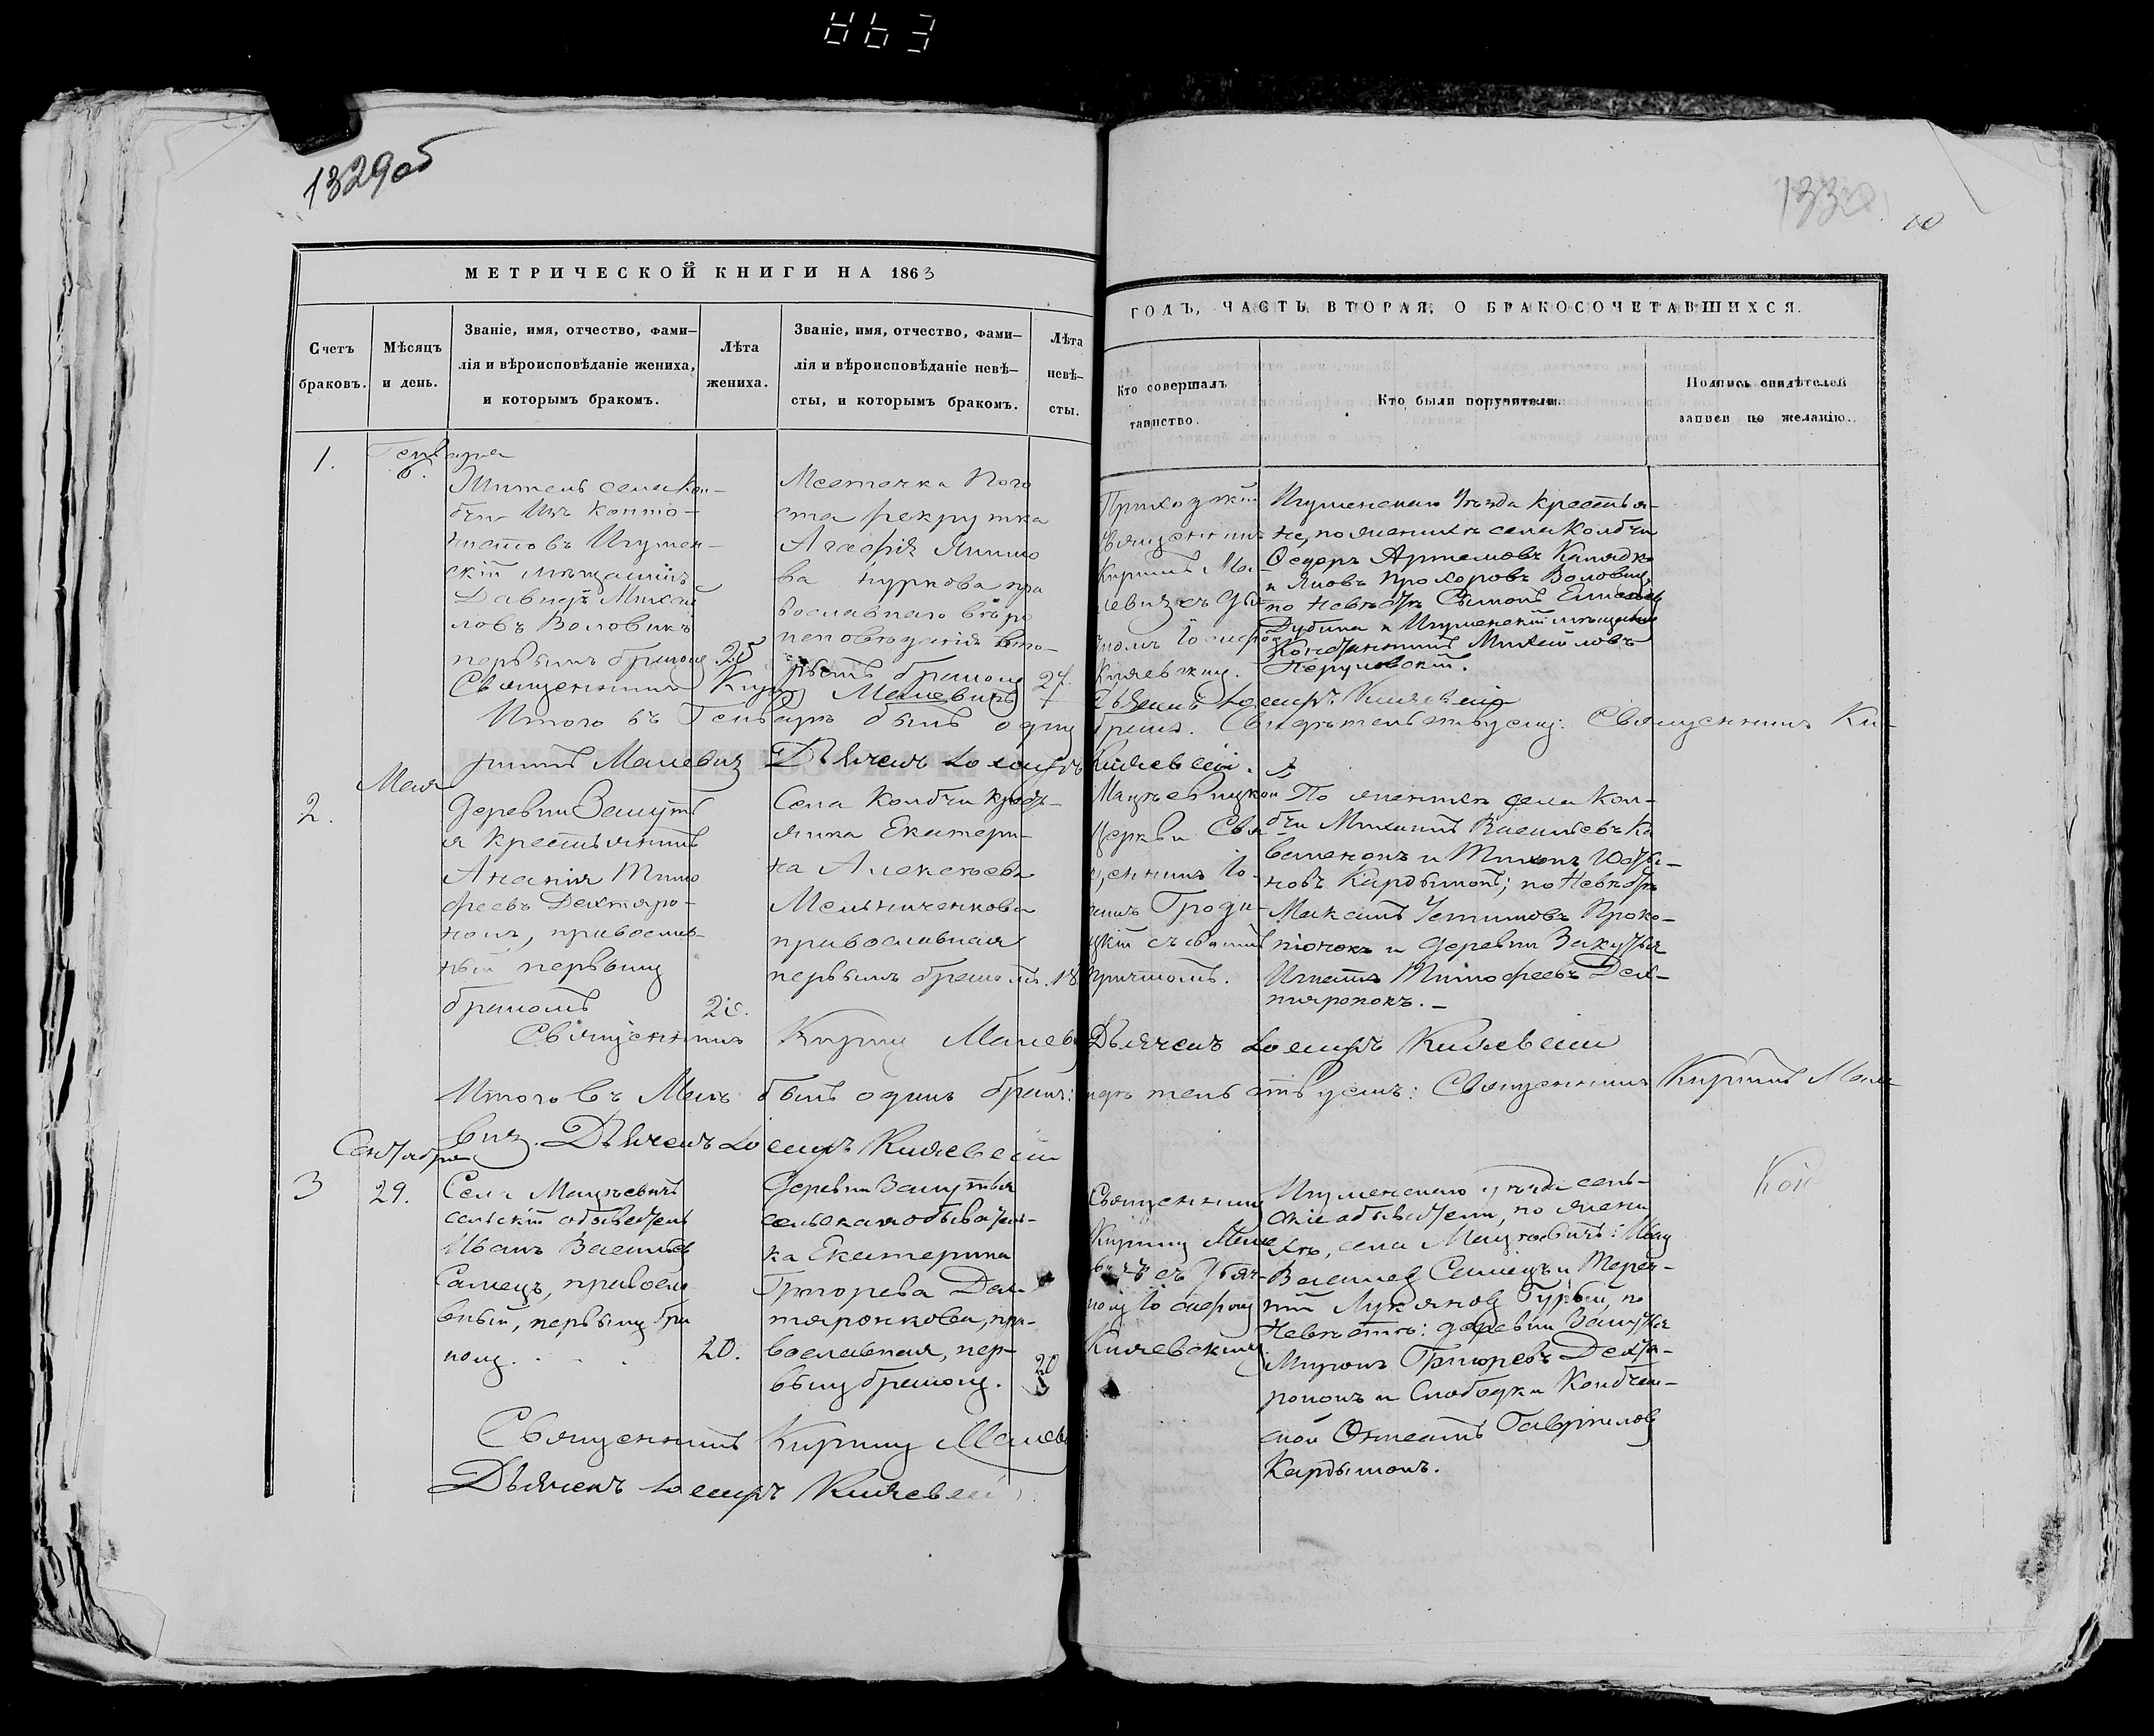 863
1329об
1330
10
МЕТРИЧЕСКОЙ КНИГИ НА 1863
ГОДЪ, ЧАСТЬ ВТОРАЯ, О БРАКОСОЧЕТАВШИХСЯ.
Счетъ браковъ.
Мѣсяцъ и день.
Званіе, имя, отчество, фами-
лія и вѣроисповѣданіе жениха,
и которымъ бракомъ.
Лѣта жениха.
Званіе, имя, отчество, фами-
лія и вѣроисповѣданіе невѣ-
сты, и которымъ бракомъ.
Лѣта невѣ-
сты.
Кто совершалъ
таинство.
Кто были поручители.
Подпись свидѣтелей
записи по желанію.
1.
Генваря
6.
Житель села Кол-
бчи Изъ
Игумен-
скій мѣщанинъ
Давидъ Михай
ловъ Воловикъ
первымъ бракомъ 25
Мѣстечка Пого
ста рекрутка
Агафія
ва пра
вославнаго вѣро
исповѣданія вто-
рымъ бракомъ 27.
Приходскій
Священникъ
Кирилъ Ма-
левичъ съ Дья
чкомъ Іосифомъ
Княжевскимъ.
Игуменскаго Уѣзда крестья-
не, по женихѣ села Колбчи
Ѳедоръ Артемовъ
и Яковъ Прохоровъ Воловикъ,
по невѣстѣ Сымонъ
Дубина и Игуменскій мѣщанинъ
Константинъ Михайловъ
Священникъ Кирилъ Малевичъ
Дьячекъ Іосифъ Княжевскій
Итого въ Генварѣ былъ одинъ бракъ. Свидѣтельствуемъ: Священникъ Ки-
рилъ Малевичъ Дьячекъ Іосифъ Княжевскій.
Мая
2.
Деревни Закутъ
я крестьянинъ
Ананія Тимо
феевъ Дехтяро-
нокъ, православ-
ный первымъ
бракомъ
Села Колбчи кресть-
янка Екатери-
на Алексѣева
Мельниченкова
православная
первымъ бракомъ. 18
Мацѣевицкой
Церкви Свя
щенникъ Іо-
аннъ Гроди-
цкій съ своимъ
причтомъ.
По женихѣ села Кол-
бчи Михаилъ Васильевъ Ко
валенокъ и Тихонъ Юсти-
новъ Кардымонъ; по Невѣстѣ
Максимъ Устиновъ Проко-
пюнокъ и деревни Закутья
Игнатъ Тимофеевъ Дех-
тяронокъ.
Священникъ Кирилъ Малевичъ
Дьячекъ Іосифъ Княжевскій
Итого въ Маѣ былъ одинъ бракъ: Свидѣтельствуемъ: Священникъ Кирилъ Мале-
вичъ. Дьячекъ Іосифъ Княжевскій
Сентября
3
29.
Села Мацѣевичъ
сельскій обыватель
Иванъ Васильевъ
Самецъ, правосла
вный, первымъ бра
комъ. . . . 20.
Деревни Закутья
сельская обыватель-
ка Екатерина
Григорева Дех-
тяронкова, пра-
вославная, пер-
вымъ бракомъ. 20
Священникъ
Кирилъ Мале
вичъ съ Дьяч-
комъ Іосифомъ
Княжевскимъ
Игуменскаго уѣзда сель-
скіе обыватели, по жени
хѣ, села Мацѣевичъ: Иванъ
Васильевъ Самецъ и Терен-
тій Лукяновъ Гурбой, по
Невѣстѣ: деревни Закутья
Миронъ Григоревъ Дехтя-
ронокъ и Слободки Колбчан-
ской Гавриловъ
Кардымонъ.
Кой
Священникъ Кирилъ Малевичъ
Дьячекъ Іосифъ Княжевскій